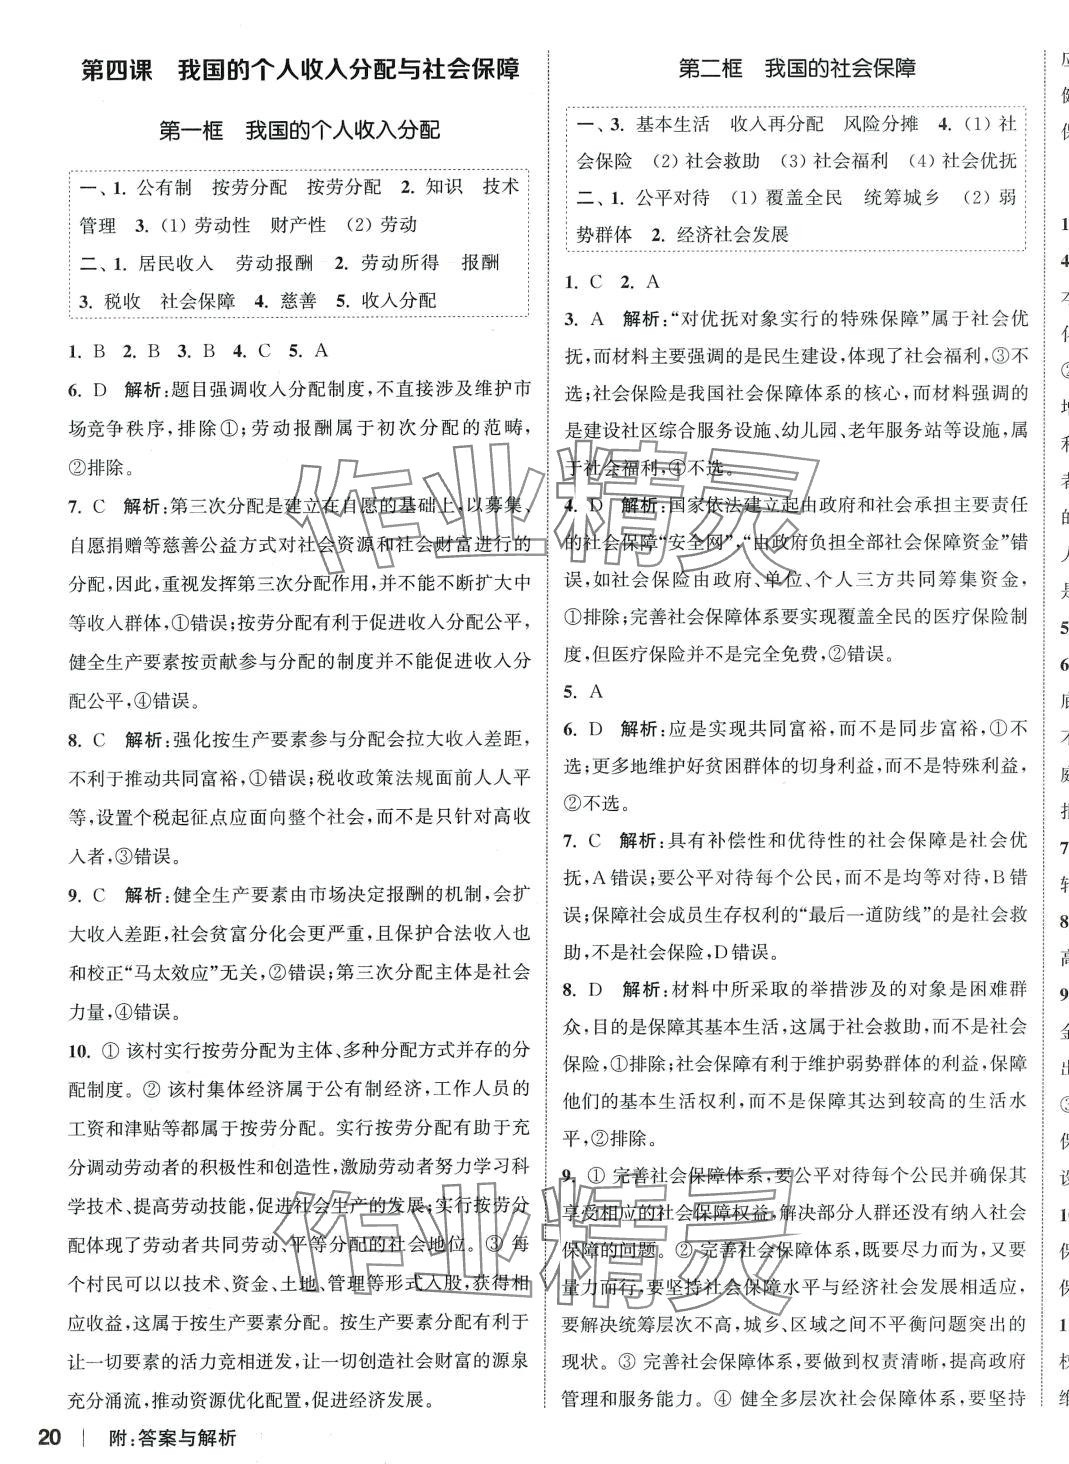 第四课 我国的个人收入分配与社会保障
第一框 我国的个人收入分配
一、1. 公有制 按劳分配 按劳分配 2. 知识 技术
管理 3. (1) 劳动性 财产性 (2) 劳动
二、1. 居民收入 劳动报酬 2. 劳动所得 报酬
3. 税收 社会保障 4. 慈善 5. 收入分配
1. B 2. B 3. B 4. C 5. A
6. D 解析:题目强调收入分配制度,不直接涉及维护市
场竞争秩序,排除①;劳动报酬属于初次分配的范畴,
②排除。
7. C 解析:第三次分配是建立在自愿的基础上,以募集、
自愿捐赠等慈善公益方式对社会资源和社会财富进行的
分配,因此,重视发挥第三次分配作用,并不能不断扩大中
等收入群体,①错误;按劳分配有利于促进收入分配公平,
健全生产要素按贡献参与分配的制度并不能促进收入分
配公平,④错误。
8. C 解析:强化按生产要素参与分配会拉大收入差距,
不利于推动共同富裕,①错误;税收政策法规面前人人平
等,设置个税起征点应面向整个社会,而不是只针对高收
入者,③错误。
9. C 解析:健全生产要素由市场决定报酬的机制,会扩
大收入差距,社会贫富分化会更严重,且保护合法收入也
和校正“马太效应”无关,②错误;第三次分配主体是社会
力量,④错误。
10. ① 该村实行按劳分配为主体、多种分配方式并存的分
配制度。② 该村集体经济属于公有制经济,工作人员的
工资和津贴等都属于按劳分配。实行按劳分配有助于充
分调动劳动者的积极性和创造性,激励劳动者努力学习科
学技术、提高劳动技能,促进社会生产的发展;实行按劳分
配体现了劳动者共同劳动、平等分配的社会地位。③ 每
个村民可以以技术、资金、土地、管理等形式入股,获得相
应收益,这属于按生产要素分配。按生产要素分配有利于
让一切要素的活力竞相迸发,让一切创造社会财富的源泉
充分涌流,推动资源优化配置,促进经济发展。
20 附:答案与解析
第二框 我国的社会保障
一、3. 基本生活 收入再分配 风险分摊 4. (1) 社
会保险 (2) 社会救助 (3) 社会福利 (4) 社会优抚
二、1. 公平对待 (1) 覆盖全民 统筹城乡 (2) 弱
势群体 2. 经济社会发展
1. C 2. A
3. A 解析:“对优抚对象实行的特殊保障”属于社会优
抚,而材料主要强调的是民生建设,体现了社会福利,③不
选;社会保险是我国社会保障体系的核心,而材料强调的
是建设社区综合服务设施、幼儿园、老年服务站等设施,属
于社会福利,④不选。
4. D 解析:国家依法建立起由政府和社会承担主要责任
的社会保障“安全网”,“由政府负担全部社会保障资金”错
误,如社会保险由政府、单位、个人三方共同筹集资金,
①排除;完善社会保障体系要实现覆盖全民的医疗保险制
度,但医疗保险并不是完全免费,②错误。
5. A
6. D 解析:应是实现共同富裕,而不是同步富裕,①不
选;更多地维护好贫困群体的切身利益,而不是特殊利益,
②不选。
7. C 解析:具有补偿性和优待性的社会保障是社会优
抚,A错误;要公平对待每个公民,而不是均等对待,B错
误;保障社会成员生存权利的“最后一道防线”的是社会救
助,不是社会保险,D错误。
8. D 解析:材料中所采取的举措涉及的对象是困难群
众,目的是保障其基本生活,这属于社会救助,而不是社会
保险,①排除;社会保障有利于维护弱势群体的利益,保障
他们的基本生活权利,而不是保障其达到较高的生活水
平,②排除。
9. ① 完善社会保障体系,要公平对待每个公民并确保其
享受相应的社会保障权益,解决部分人群还没有纳入社会
保障的问题。② 完善社会保障体系,既要尽力而为,又要
量力而行,要坚持社会保障水平与经济社会发展相适应,
要解决统筹层次不高,城乡、区域之间不平衡问题突出的
现状。③ 完善社会保障体系,要做到权责清晰,提高政府
管理和服务能力。④ 健全多层次社会保障体系,要坚持
作业精灵
作业精灵